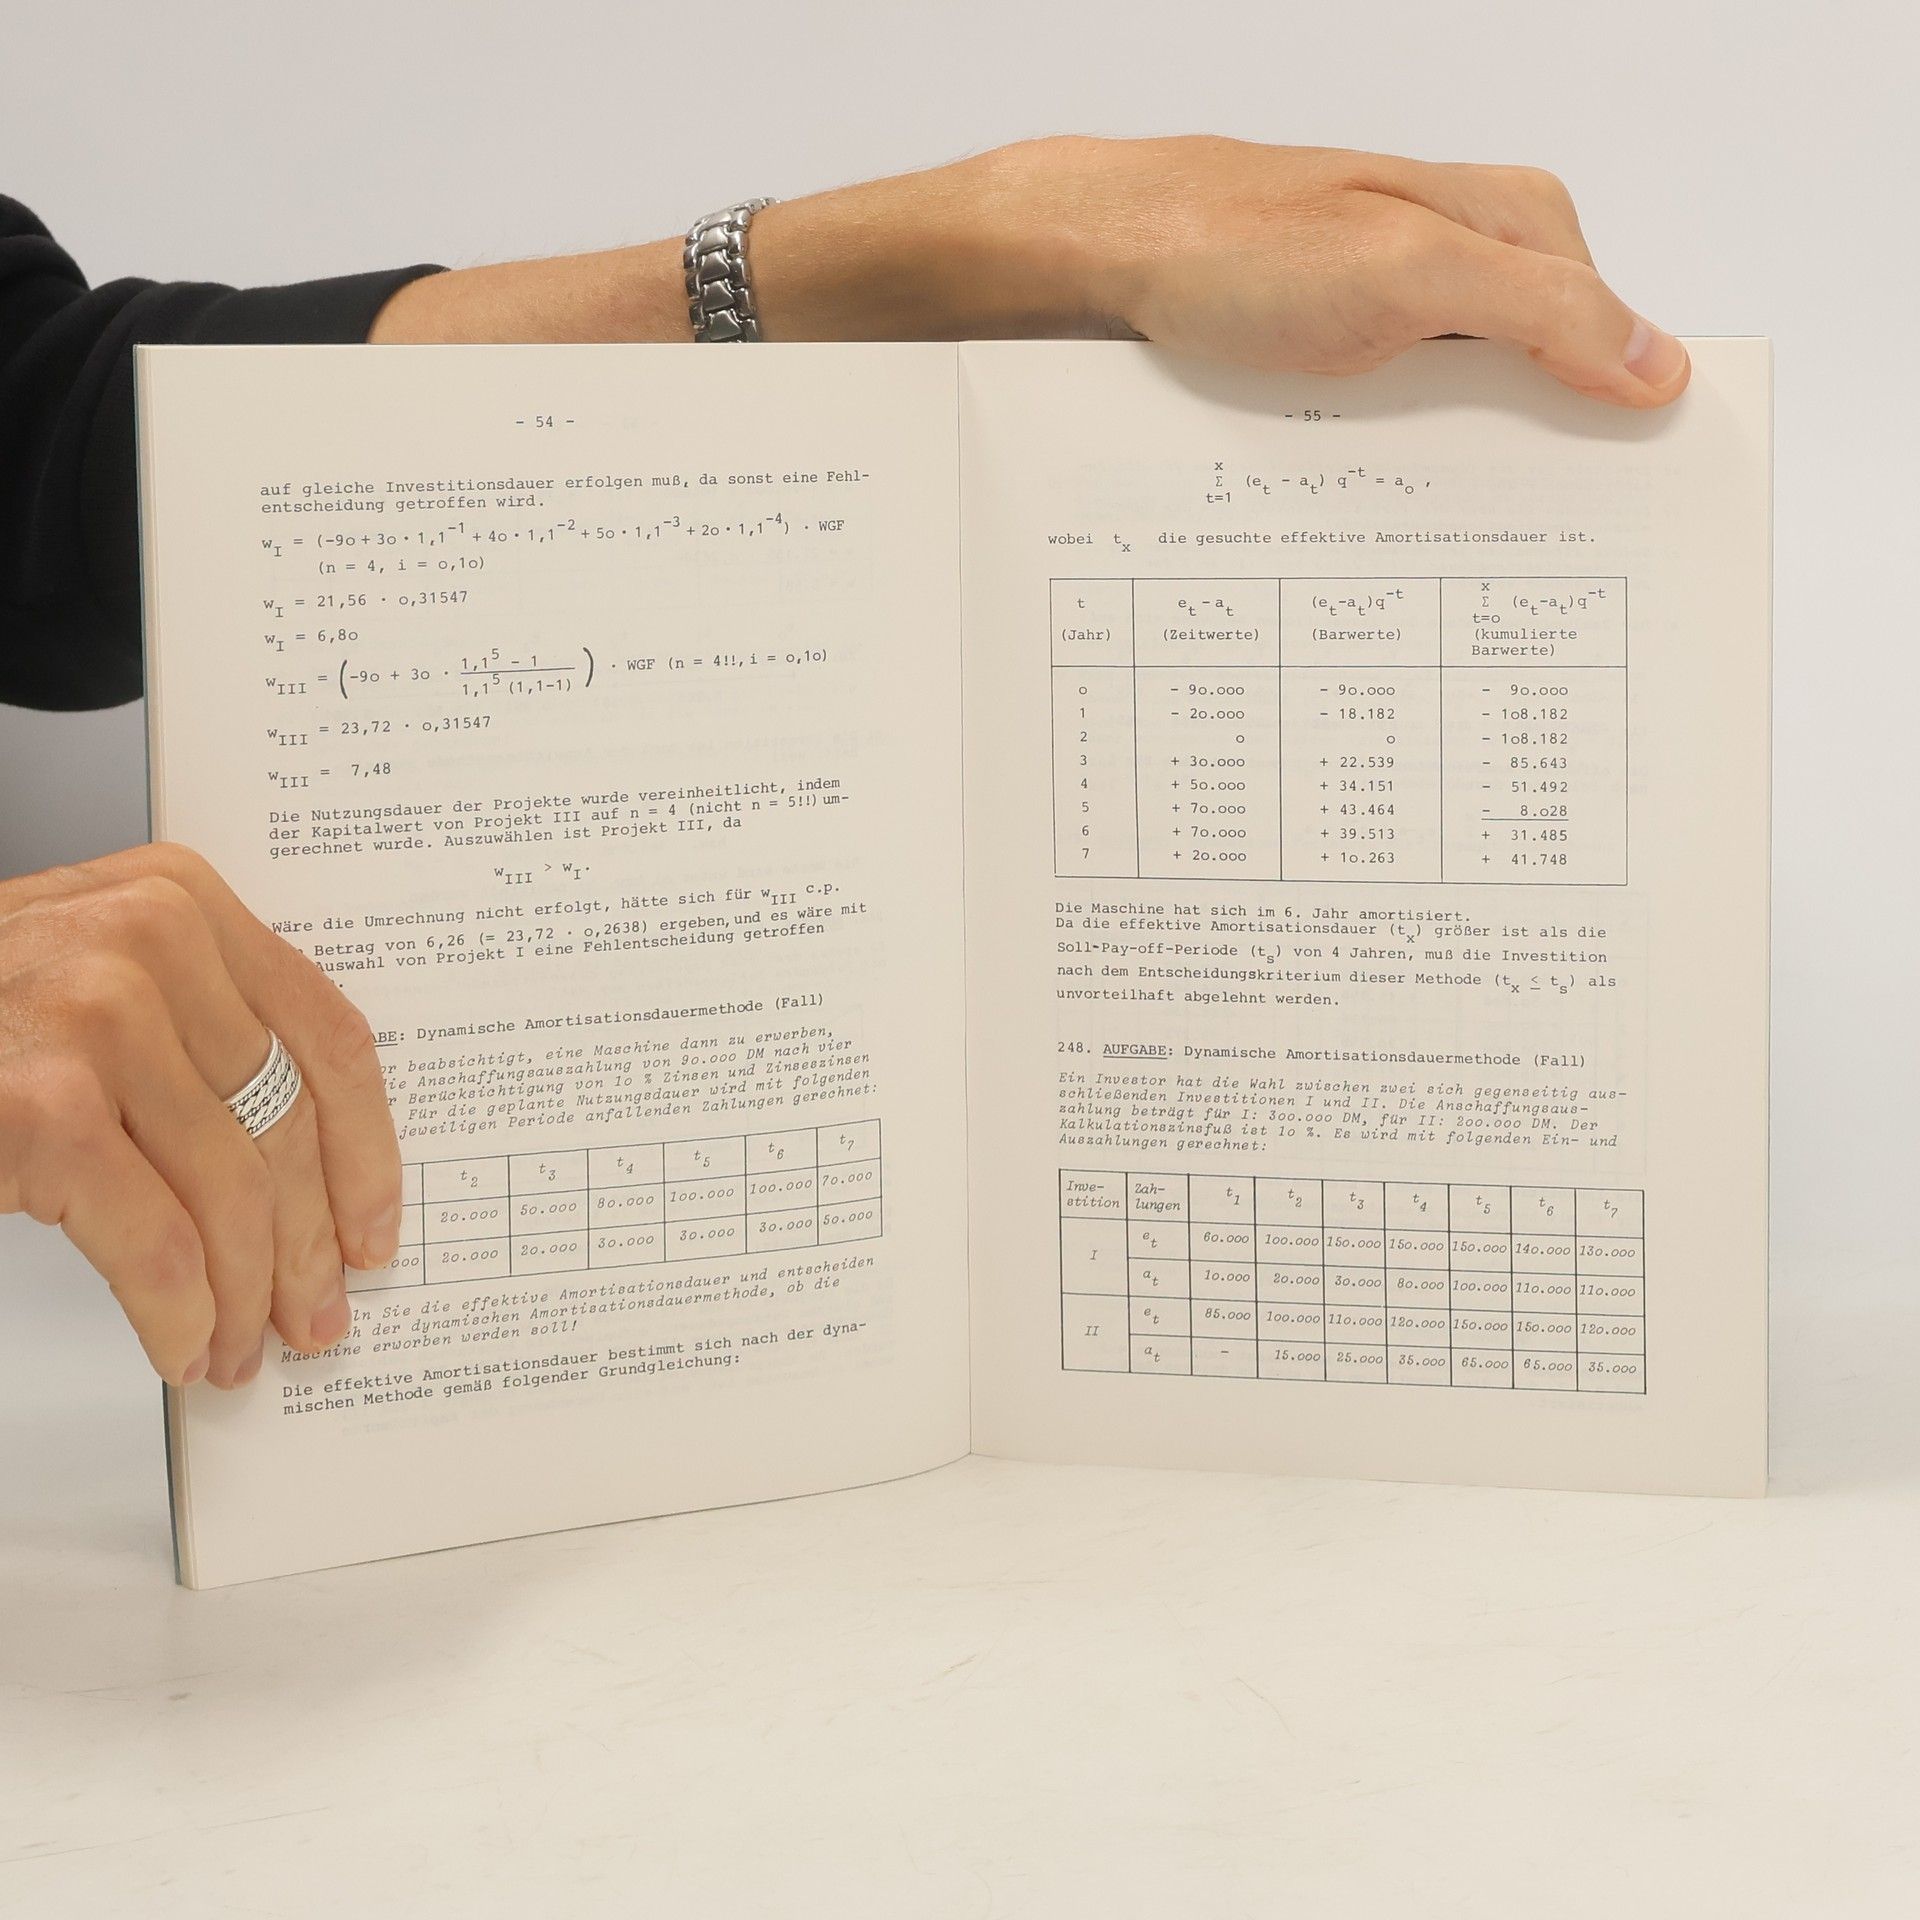 - 54 -
auf gleiche Investitionsdauer erfolgen muß, da sonst eine Fehl-
entscheidung getroffen wird.
w_I = (-9o + 3o · 1,1^-1 + 4o · 1,1^-2 + 5o · 1,1^-3 + 2o · 1,1^-4) · WGF
(n = 4, i = o,1o)
w_I = 21,56 · o,31547
w_I = 6,8o
w_III = (-9o + 3o · (1,1^5 - 1) / (1,1^5 (1,1-1))) · WGF (n = 4!!, i = o,1o)
w_III = 23,72 · o,31547
w_III = 7,48
Die Nutzungsdauer der Projekte wurde vereinheitlicht, indem
der Kapitalwert von Projekt III auf n = 4 (nicht n = 5!!) um-
gerechnet wurde. Auszuwählen ist Projekt III, da
w_III > w_I.
Wäre die Umrechnung nicht erfolgt, hätte sich für w_III c.p.
Betrag von 6,26 (= 23,72 · o,2638) ergeben, und es wäre mit
Auswahl von Projekt I eine Fehlentscheidung getroffen
ABE: Dynamische Amortisationsdauermethode (Fall)
or beabsichtigt, eine Maschine dann zu erwerben,
die Anschaffungsauszahlung von 9o.ooo DM nach vier
r Berücksichtigung von 1o % Zinsen und Zinseszinsen
Für die geplante Nutzungsdauer wird mit folgenden
jeweiligen Periode anfallenden Zahlungen gerechnet:
t_2 t_3 t_4 t_5 t_6 t_7
2o.ooo 5o.ooo 8o.ooo 1oo.ooo 1oo.ooo 7o.ooo
.ooo 2o.ooo 2o.ooo 3o.ooo 3o.ooo 3o.ooo 5o.ooo
ln Sie die effektive Amortisationsdauer und entscheiden
ch der dynamischen Amortisationsdauermethode, ob die
Maschine erworben werden soll!
Die effektive Amortisationsdauer bestimmt sich nach der dyna-
mischen Methode gemäß folgender Grundgleichung:
- 55 -
x
Σ (e_t - a_t) q^-t = a_o ,
t=1
wobei t_x die gesuchte effektive Amortisationsdauer ist.
t e_t - a_t (e_t-a_t)q^-t x Σ t=o (e_t-a_t)q^-t
(Jahr) (Zeitwerte) (Barwerte) (kumulierte
Barwerte)
o - 9o.ooo - 9o.ooo - 9o.ooo
1 - 2o.ooo - 18.182 - 1o8.182
2 o o - 1o8.182
3 + 3o.ooo + 22.539 - 85.643
4 + 5o.ooo + 34.151 - 51.492
5 + 7o.ooo + 43.464 - 8.o28
6 + 7o.ooo + 39.513 + 31.485
7 + 2o.ooo + 1o.263 + 41.748
Die Maschine hat sich im 6. Jahr amortisiert.
Da die effektive Amortisationsdauer (t_x) größer ist als die
Soll-Pay-off-Periode (t_s) von 4 Jahren, muß die Investition
nach dem Entscheidungskriterium dieser Methode (t_x ≤ t_s) als
unvorteilhaft abgelehnt werden.
248. AUFGABE: Dynamische Amortisationsdauermethode (Fall)
Ein Investor hat die Wahl zwischen zwei sich gegenseitig aus-
schließenden Investitionen I und II. Die Anschaffungsaus-
zahlung beträgt für I: 3oo.ooo DM, für II: 2oo.ooo DM. Der
Kalkulationszinsfuß ist 1o %. Es wird mit folgenden Ein- und
Auszahlungen gerechnet:
Inve- Zah- t_1 t_2 t_3 t_4 t_5 t_6 t_7
stition lungen
I e_t 6o.ooo 1oo.ooo 15o.ooo 15o.ooo 15o.ooo 14o.ooo 13o.ooo
a_t 1o.ooo 2o.ooo 3o.ooo 8o.ooo 1oo.ooo 11o.ooo 11o.ooo
II e_t 85.ooo 1oo.ooo 11o.ooo 12o.ooo 15o.ooo 15o.ooo 12o.ooo
a_t - 15.ooo 25.ooo 35.ooo 65.ooo 65.ooo 35.ooo